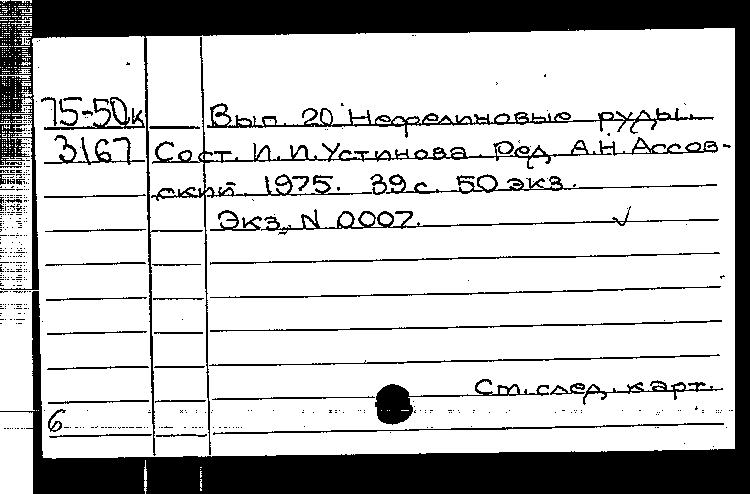 75-50к Вып. 20 Нефелиновые руды.
3167 Сост. И.П.Устинова. Ред. А.Н.Ассов-
ский. 1975. 39 с. 50 экз.
Экз. N 0007. ✓
См.след. карт.
6